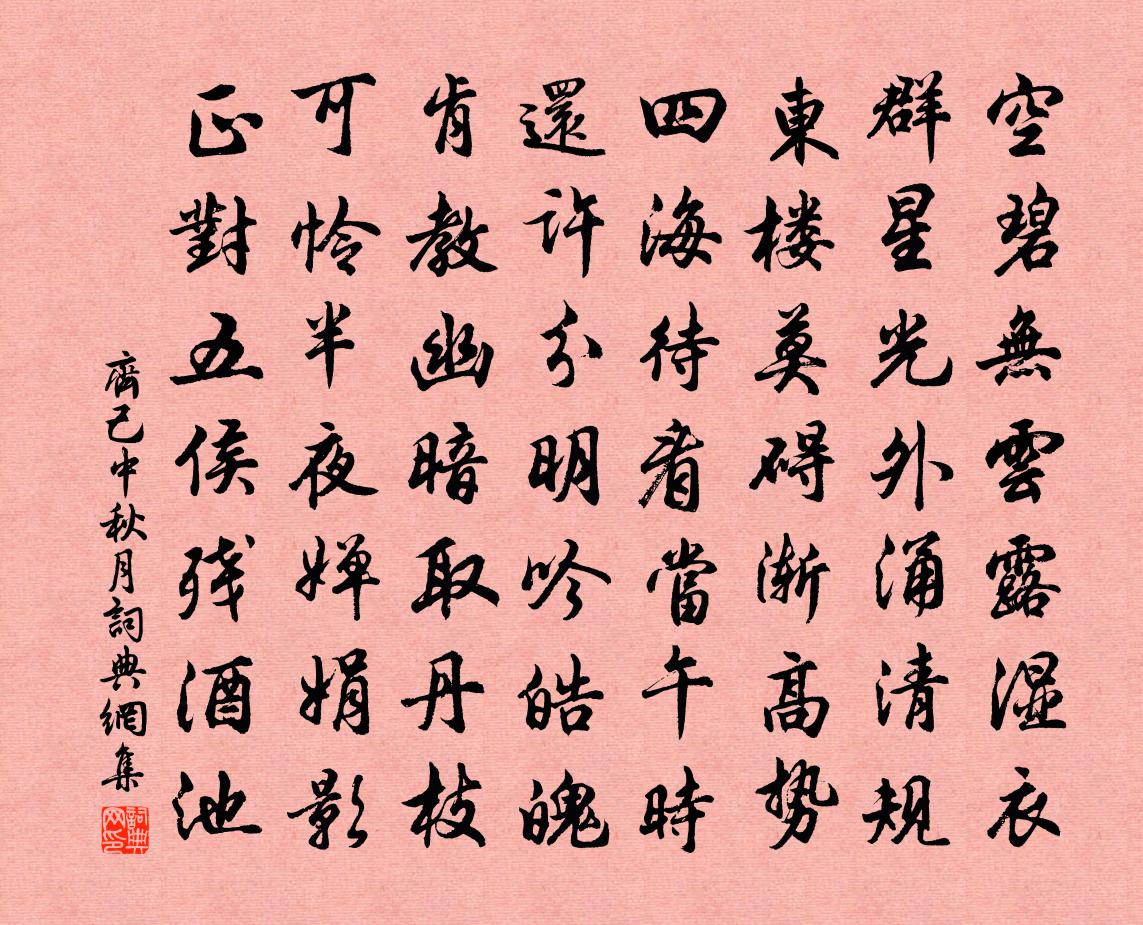 空碧無雲露湿衣
群星光外涌清規
東楼莫碍漸高勢
四海待看當午時
還許分明吟皓魄
肯教幽暗取丹枝
可怜半夜婵娟影
正對五侯残酒池
齊己中秋月詞典網集
詞典网印